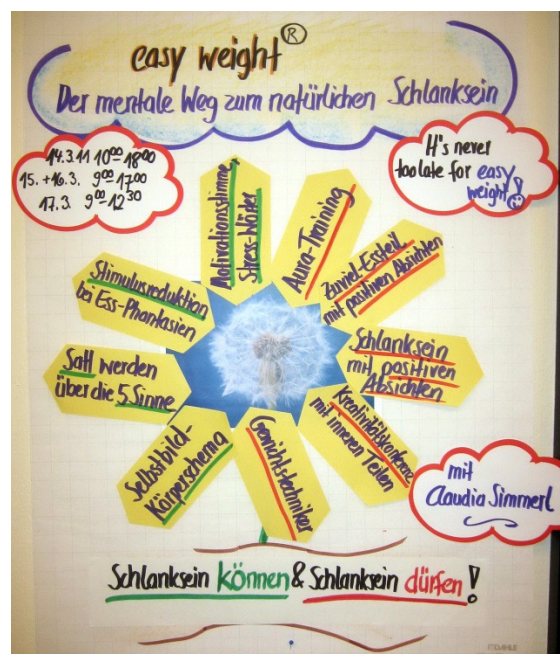 easy weight®
Der mentale Weg zum natürlichen Schlanksein
14.3.11 10⁰⁰-18⁰⁰
15.+16.3. 9⁰⁰-17⁰⁰
17.3. 9⁰⁰-12³⁰
It's never
too late for easy
weight!
Motivationsstimme
Stress-Nörter
Aura-Training
Zuviel-Essteil
mit positiven Absichten
Schlanksein
mit positiven
Absichten
Kreativitätskonferenz
mit inneren Teilen
Gewichtstechniker
Selbstbild-
Körperschema
Satt werden
über die 5 Sinne
Stimulusreduktion
bei Ess-Phantasien
mit
Claudia Simmerl
Schlanksein können & Schlanksein dürfen!
DAHLE